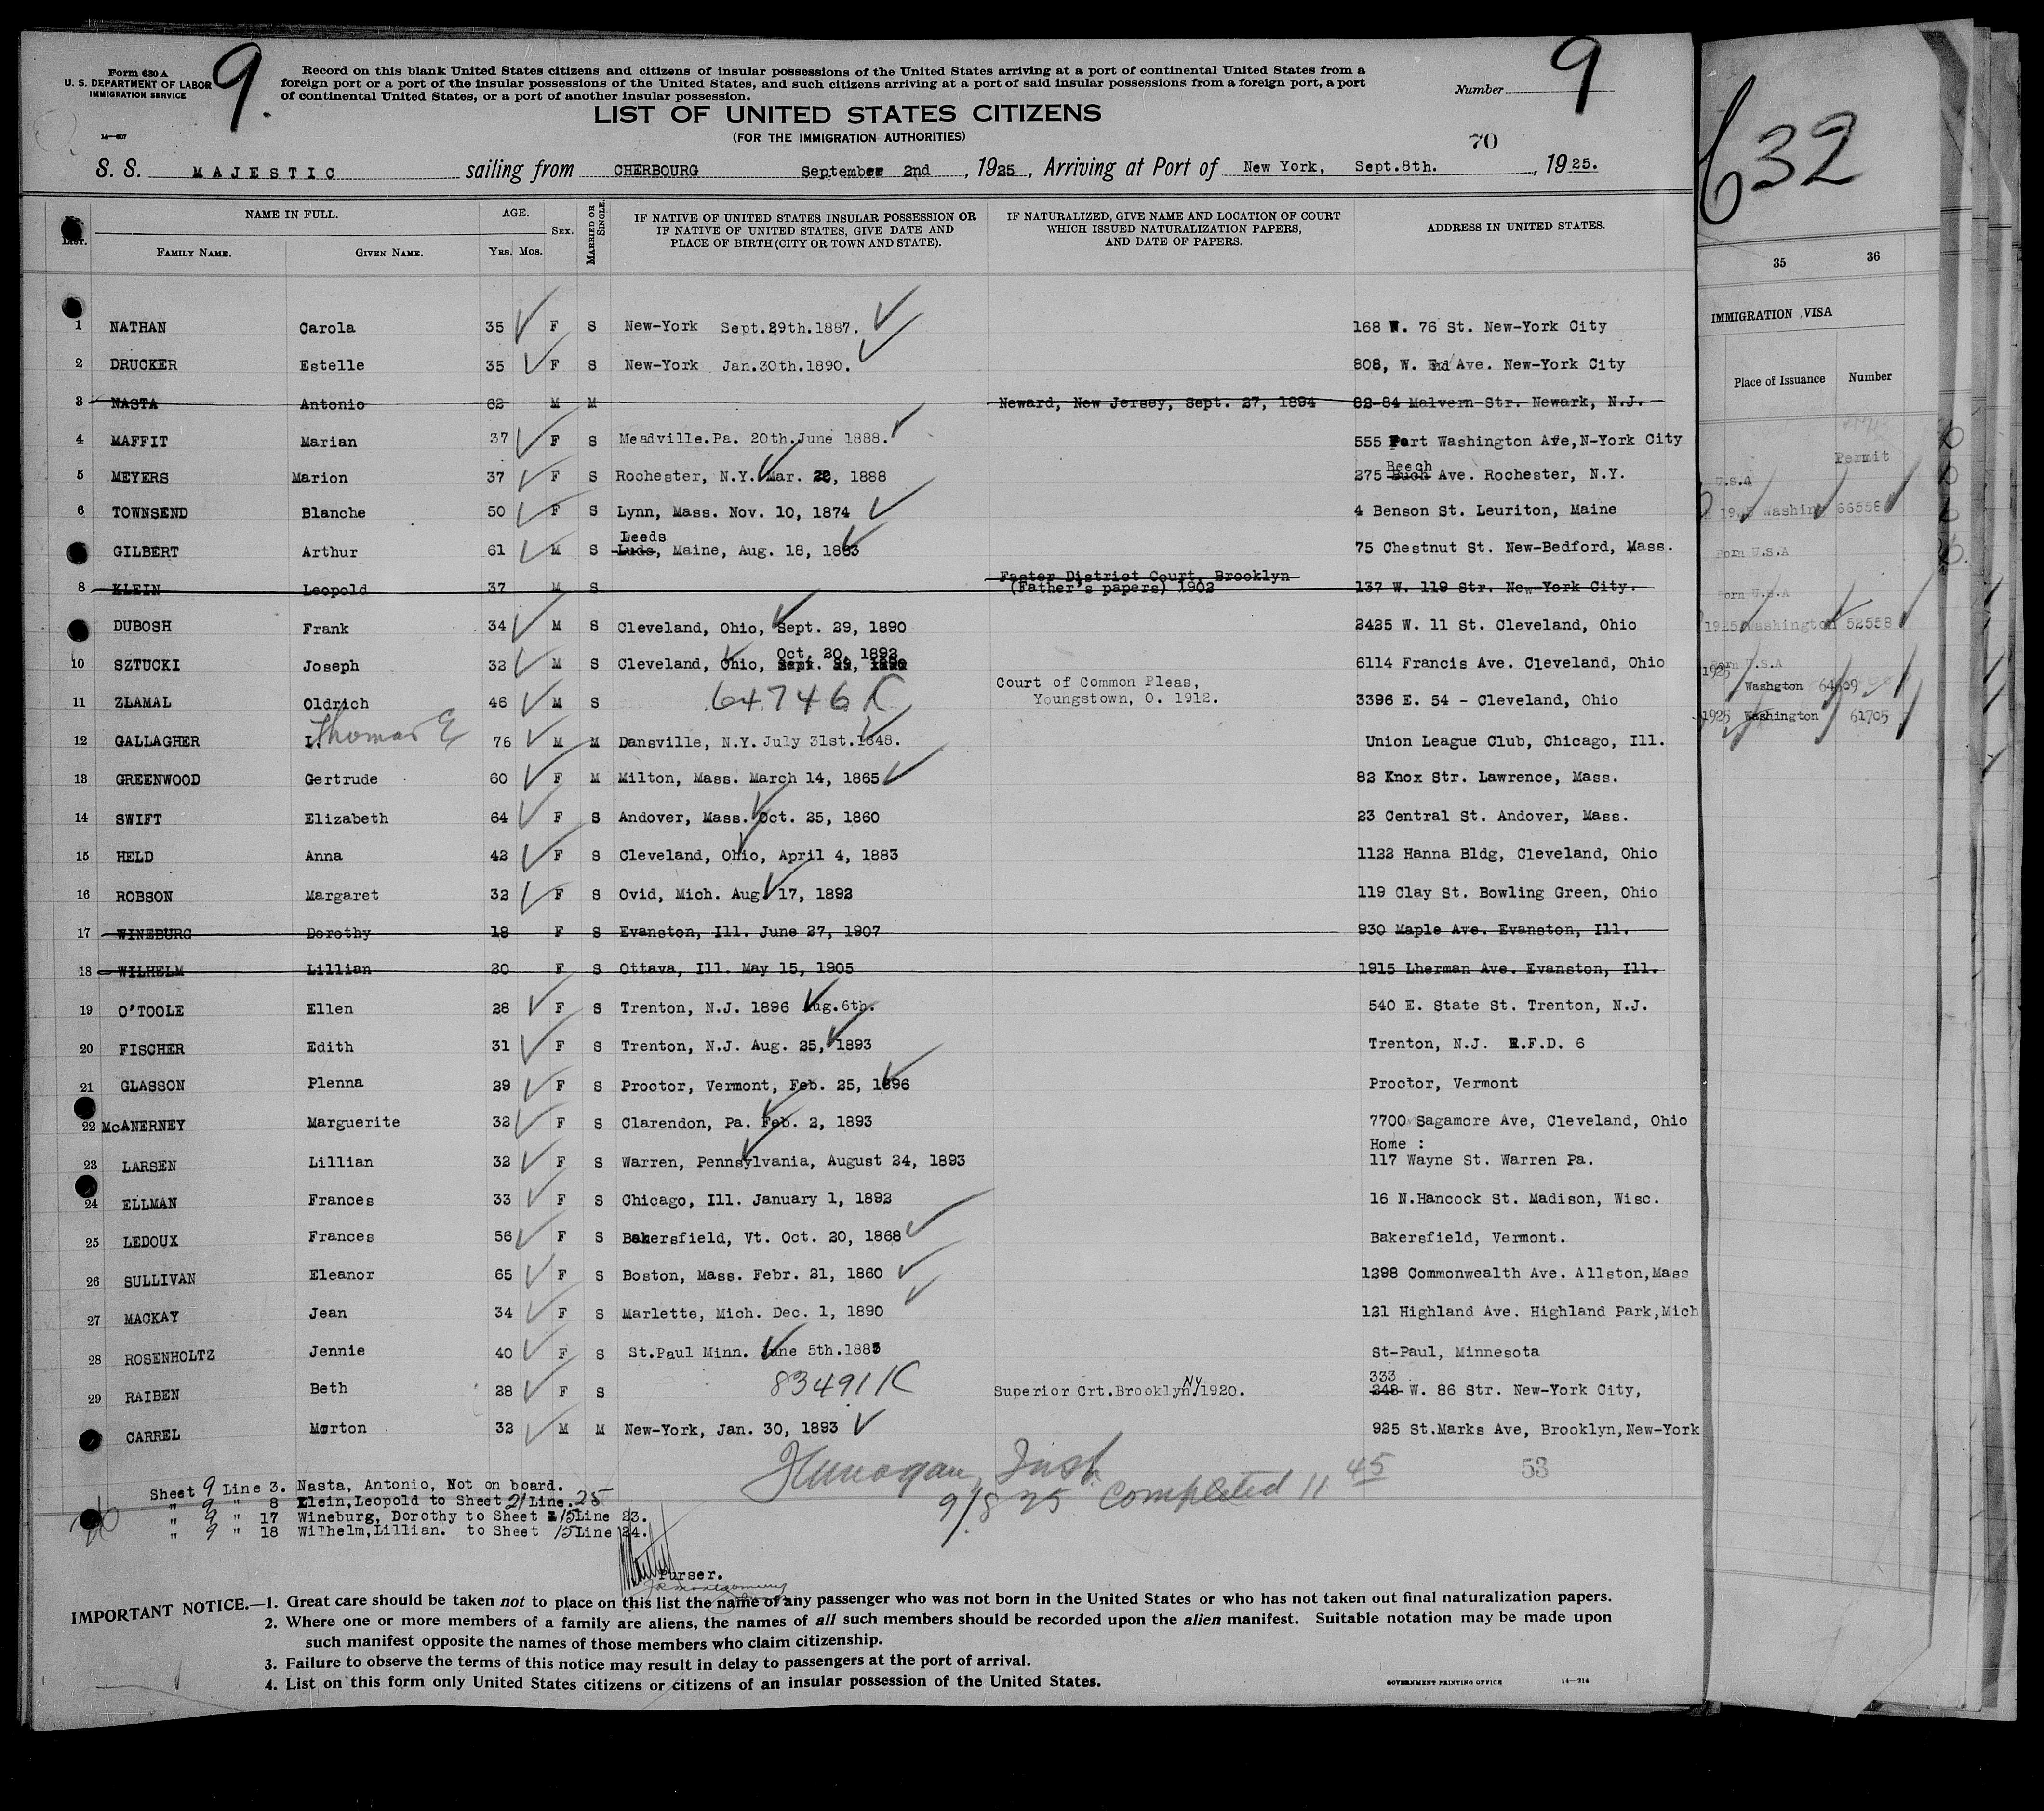 Form 630 A
U. S. DEPARTMENT OF LABOR
IMMIGRATION SERVICE
14—607
9.
Record on this blank United States citizens and citizens of insular possessions of the United States arriving at a port of continental United States from a
foreign port or a port of the insular possessions of the United States, and such citizens arriving at a port of said insular possessions from a foreign port, a port
of continental United States, or a port of another insular possession.
Number 9
LIST OF UNITED STATES CITIZENS
(FOR THE IMMIGRATION AUTHORITIES)
70
S. S. MAJESTIC sailing from CHERBOURG September 2nd, 1925, Arriving at Port of New York, Sept.8th., 1925.
LIST. NAME IN FULL. AGE. SEX. MARRIED OR SINGLE. IF NATIVE OF UNITED STATES INSULAR POSSESSION OR IF NATIVE OF UNITED STATES, GIVE DATE AND PLACE OF BIRTH (CITY OR TOWN AND STATE). IF NATURALIZED, GIVE NAME AND LOCATION OF COURT WHICH ISSUED NATURALIZATION PAPERS, AND DATE OF PAPERS. ADDRESS IN UNITED STATES.
FAMILY NAME. GIVEN NAME. YRS. MOS.
1 NATHAN Carola 35 F S New-York Sept.29th.1887. 168 W. 76 St. New-York City
2 DRUCKER Estelle 35 F S New-York Jan.30th.1890. 808, W. End Ave. New-York City
3 NASTA Antonio 62 M M Neward, New Jersey, Sept. 27, 1894 82-84 Malvern Str. Newark, N.J.
4 MAFFIT Marian 37 F S Meadville.Pa. 20th.June 1888. 555 Fort Washington Ave,N-York City
5 MEYERS Marion 37 F S Rochester, N.Y. Mar. 28, 1888 275 Buch Beech Ave. Rochester, N.Y.
6 TOWNSEND Blanche 50 F S Lynn, Mass. Nov. 10, 1874 4 Benson St. Leuriton, Maine
GILBERT Arthur 61 M S Luds Leeds, Maine, Aug. 18, 1863 75 Chestnut St. New-Bedford, Mass.
8 KLEIN Leopold 37 M S Faster District Court, Brooklyn (Father's papers) 1902 137 W. 119 Str. New-York City.
DUBOSH Frank 34 M S Cleveland, Ohio, Sept. 29, 1890 2425 W. 11 St. Cleveland, Ohio
10 SZTUCKI Joseph 32 M S Cleveland, Ohio, Oct. 20, 1892 6114 Francis Ave. Cleveland, Ohio
11 ZLAMAL Oldrich 46 M S 64746 K Court of Common Pleas, Youngstown, O. 1912. 3396 E. 54 - Cleveland, Ohio
12 GALLAGHER Thomas E 76 M M Dansville, N.Y. July 31st.1848. Union League Club, Chicago, Ill.
13 GREENWOOD Gertrude 60 F M Milton, Mass. March 14, 1865 82 Knox Str. Lawrence, Mass.
14 SWIFT Elizabeth 64 F S Andover, Mass. Oct. 25, 1860 23 Central St. Andover, Mass.
15 HELD Anna 42 F S Cleveland, Ohio, April 4, 1883 1122 Hanna Bldg, Cleveland, Ohio
16 ROBSON Margaret 32 F S Ovid, Mich. Aug 17, 1892 119 Clay St. Bowling Green, Ohio
17 WINEBURG Dorothy 18 F S Evanston, Ill. June 27, 1907 930 Maple Ave. Evanston, Ill.
18 WILHELM Lillian 20 F S Ottava, Ill. May 15, 1905 1915 Lherman Ave. Evanston, Ill.
19 O'TOOLE Ellen 28 F S Trenton, N.J. 1896 Aug.6th. 540 E. State St. Trenton, N.J.
20 FISCHER Edith 31 F S Trenton, N.J. Aug. 25, 1893 Trenton, N.J. R.F.D. 6
21 GLASSON Plenna 29 F S Proctor, Vermont, Feb. 25, 1896 Proctor, Vermont
22 McANERNEY Marguerite 32 F S Clarendon, Pa. Feb. 2, 1893 7700 Sagamore Ave, Cleveland, Ohio
Home :
23 LARSEN Lillian 32 F S Warren, Pennsylvania, August 24, 1893 117 Wayne St. Warren Pa.
24 ELLMAN Frances 33 F S Chicago, Ill. January 1, 1892 16 N.Hancock St. Madison, Wisc.
25 LEDOUX Frances 56 F S Bakersfield, Vt. Oct. 20, 1868 Bakersfield, Vermont.
26 SULLIVAN Eleanor 65 F S Boston, Mass. Febr. 21, 1860 1298 Commonwealth Ave. Allston,Mass
27 MACKAY Jean 34 F S Marlette, Mich. Dec. 1, 1890 121 Highland Ave. Highland Park,Mich
28 ROSENHOLTZ Jennie 40 F S St.Paul Minn. June 5th.1885 St-Paul, Minnesota
29 RAIBEN Beth 28 F S 83491K Superior Crt.Brooklyn NY/1920. 248 333 W. 86 Str. New-York City,
CARREL Morton 32 M M New-York, Jan. 30, 1893 925 St.Marks Ave, Brooklyn,New-York
53
Insp.
9/8 25 Completed 11 45
Sheet 9 Line 3. Nasta, Antonio, Not on board.
" 9 " 8 Klein,Leopold to Sheet 21 Line. 25
" 9 " 17 Wineburg, Dorothy to Sheet 15 Line 23.
" 9 " 18 Wilhelm,Lillian. to Sheet 15 Line 24.
Purser.
IMPORTANT NOTICE.—1. Great care should be taken not to place on this list the name of any passenger who was not born in the United States or who has not taken out final naturalization papers.
2. Where one or more members of a family are aliens, the names of all such members should be recorded upon the alien manifest. Suitable notation may be made upon
such manifest opposite the names of those members who claim citizenship.
3. Failure to observe the terms of this notice may result in delay to passengers at the port of arrival.
4. List on this form only United States citizens or citizens of an insular possession of the United States.
GOVERNMENT PRINTING OFFICE 14—214
632
35 36
IMMIGRATION VISA
Place of Issuance Number
Permit
U.S.A
1925 Washing 66558
Born U.S.A
Born U.S.A
1925 Washington 52558
Born U.S.A
1925
Washgton 64609
1925 Washington 61705